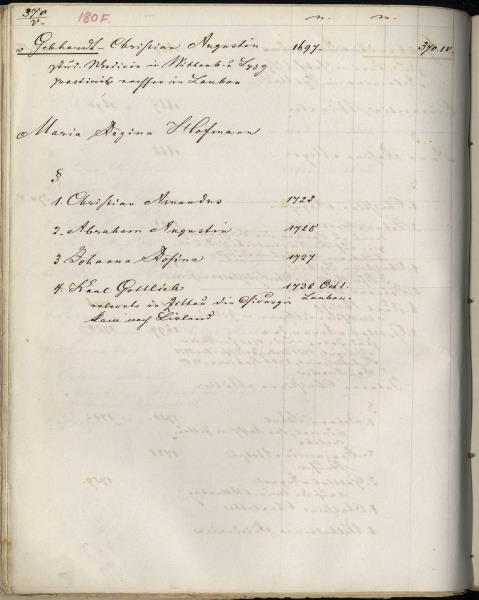 370.
V.
180 F.
n. m.
v Gebhardt - Christian Augustin 1697. 370. IV.
Stud. Medicin in Wittenb. u
practicirte nachher in Lauban
Maria Regina Hofmann
§
1. Christian Amandus 1723
2. Abraham Augustin 1725
3 Johanna Rosina 1727
4. Karl Gottlieb 1736 Oct 1.
erlernte in Zittau die Chirurgie Lauban.
kam nach Livland